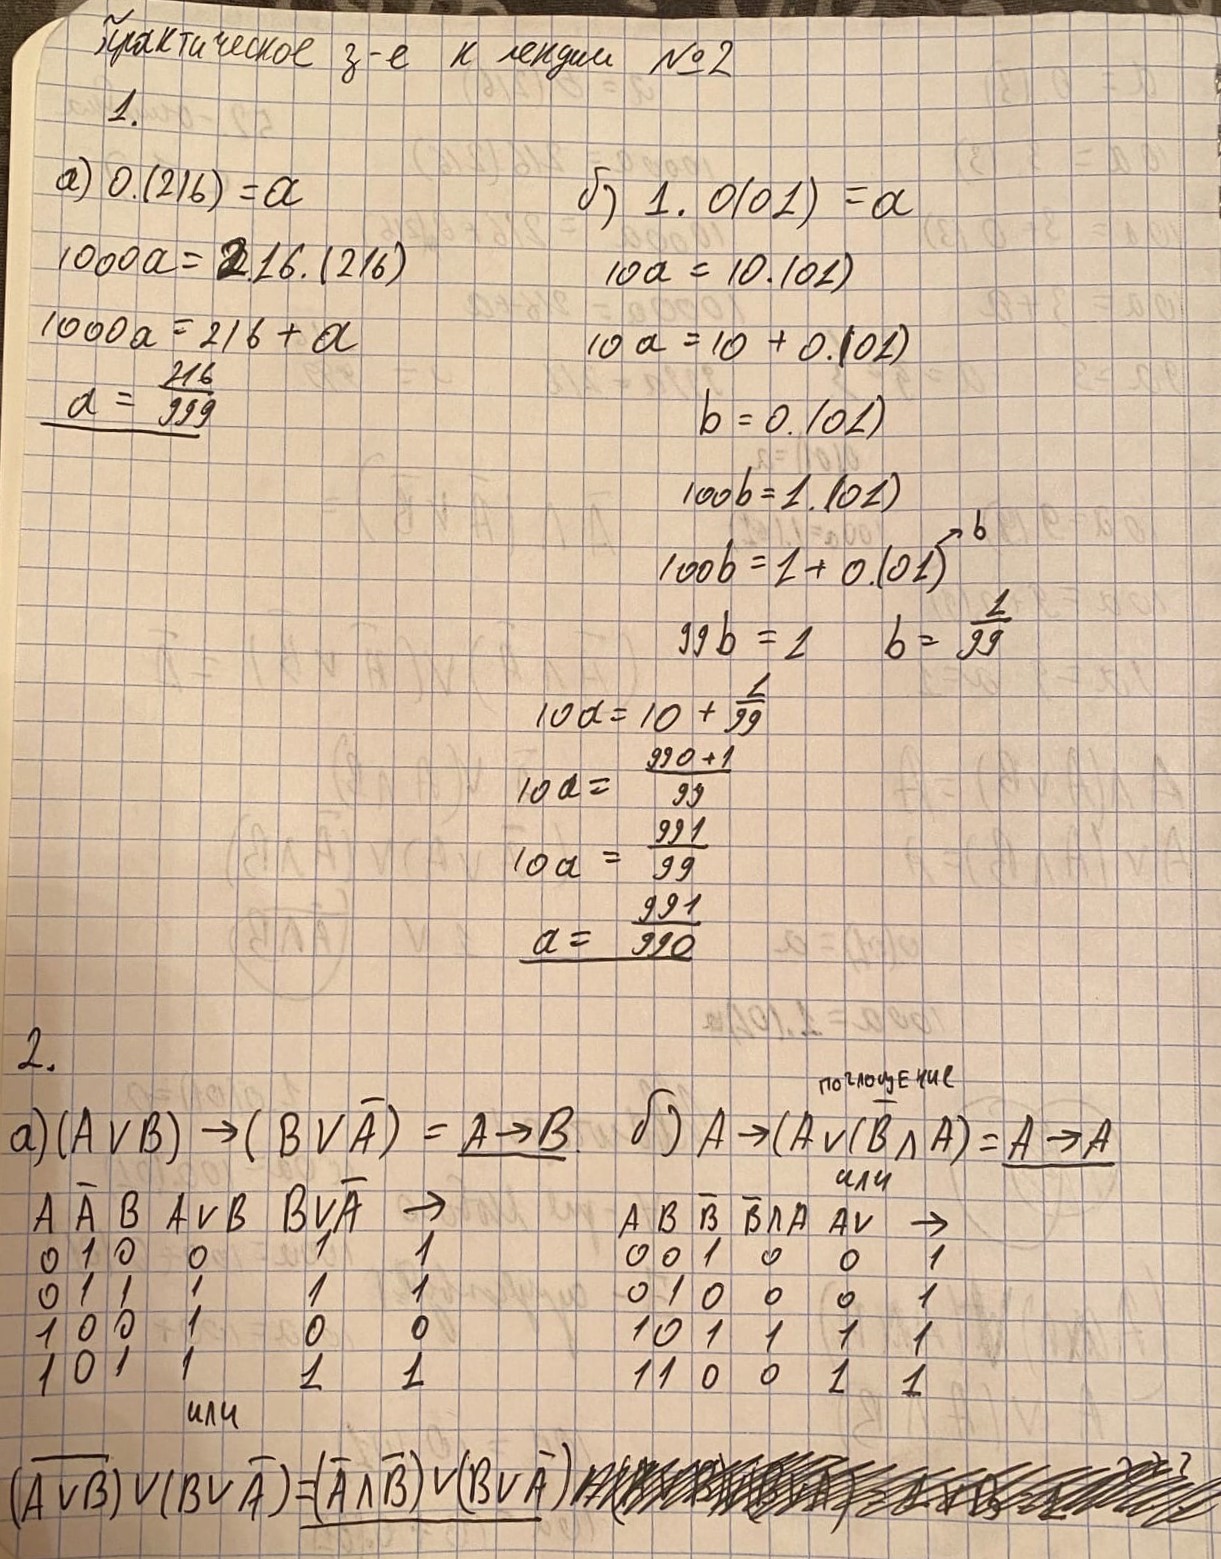 Практическое з-е к лекции №2
1.
а) 0.(216) = a
1000a = 216.(216)
1000a = 216 + a
a = 216/999
б) 1.0(01) = a
10a = 10.(01)
10a = 10 + 0.(01)
b = 0.(01)
100b = 1.(01)
100b = 1 + 0.(01) → b
99b = 1 b = 1/99
10a = 10 + 1/99
10a = 990+1/99
10a = 991/99
a = 991/990
2.
а) (A∨B) → (B∨A̅) = A→B
A A̅ B A∨B B∨A̅ →
0 1 0 0 1 1
0 1 1 1 1 1
1 0 0 1 0 0
1 0 1 1 1 1
или
поглощение
б) A → (A∨(B̅∧A) = A→A
или
A B B̅ B̅∧A A∨ →
0 0 1 0 0 1
0 1 0 0 0 1
1 0 1 1 1 1
1 1 0 0 1 1
(A̅∨̅B̅)∨(B∨A̅) = (A̅∧B̅)∨(B∨A̅)